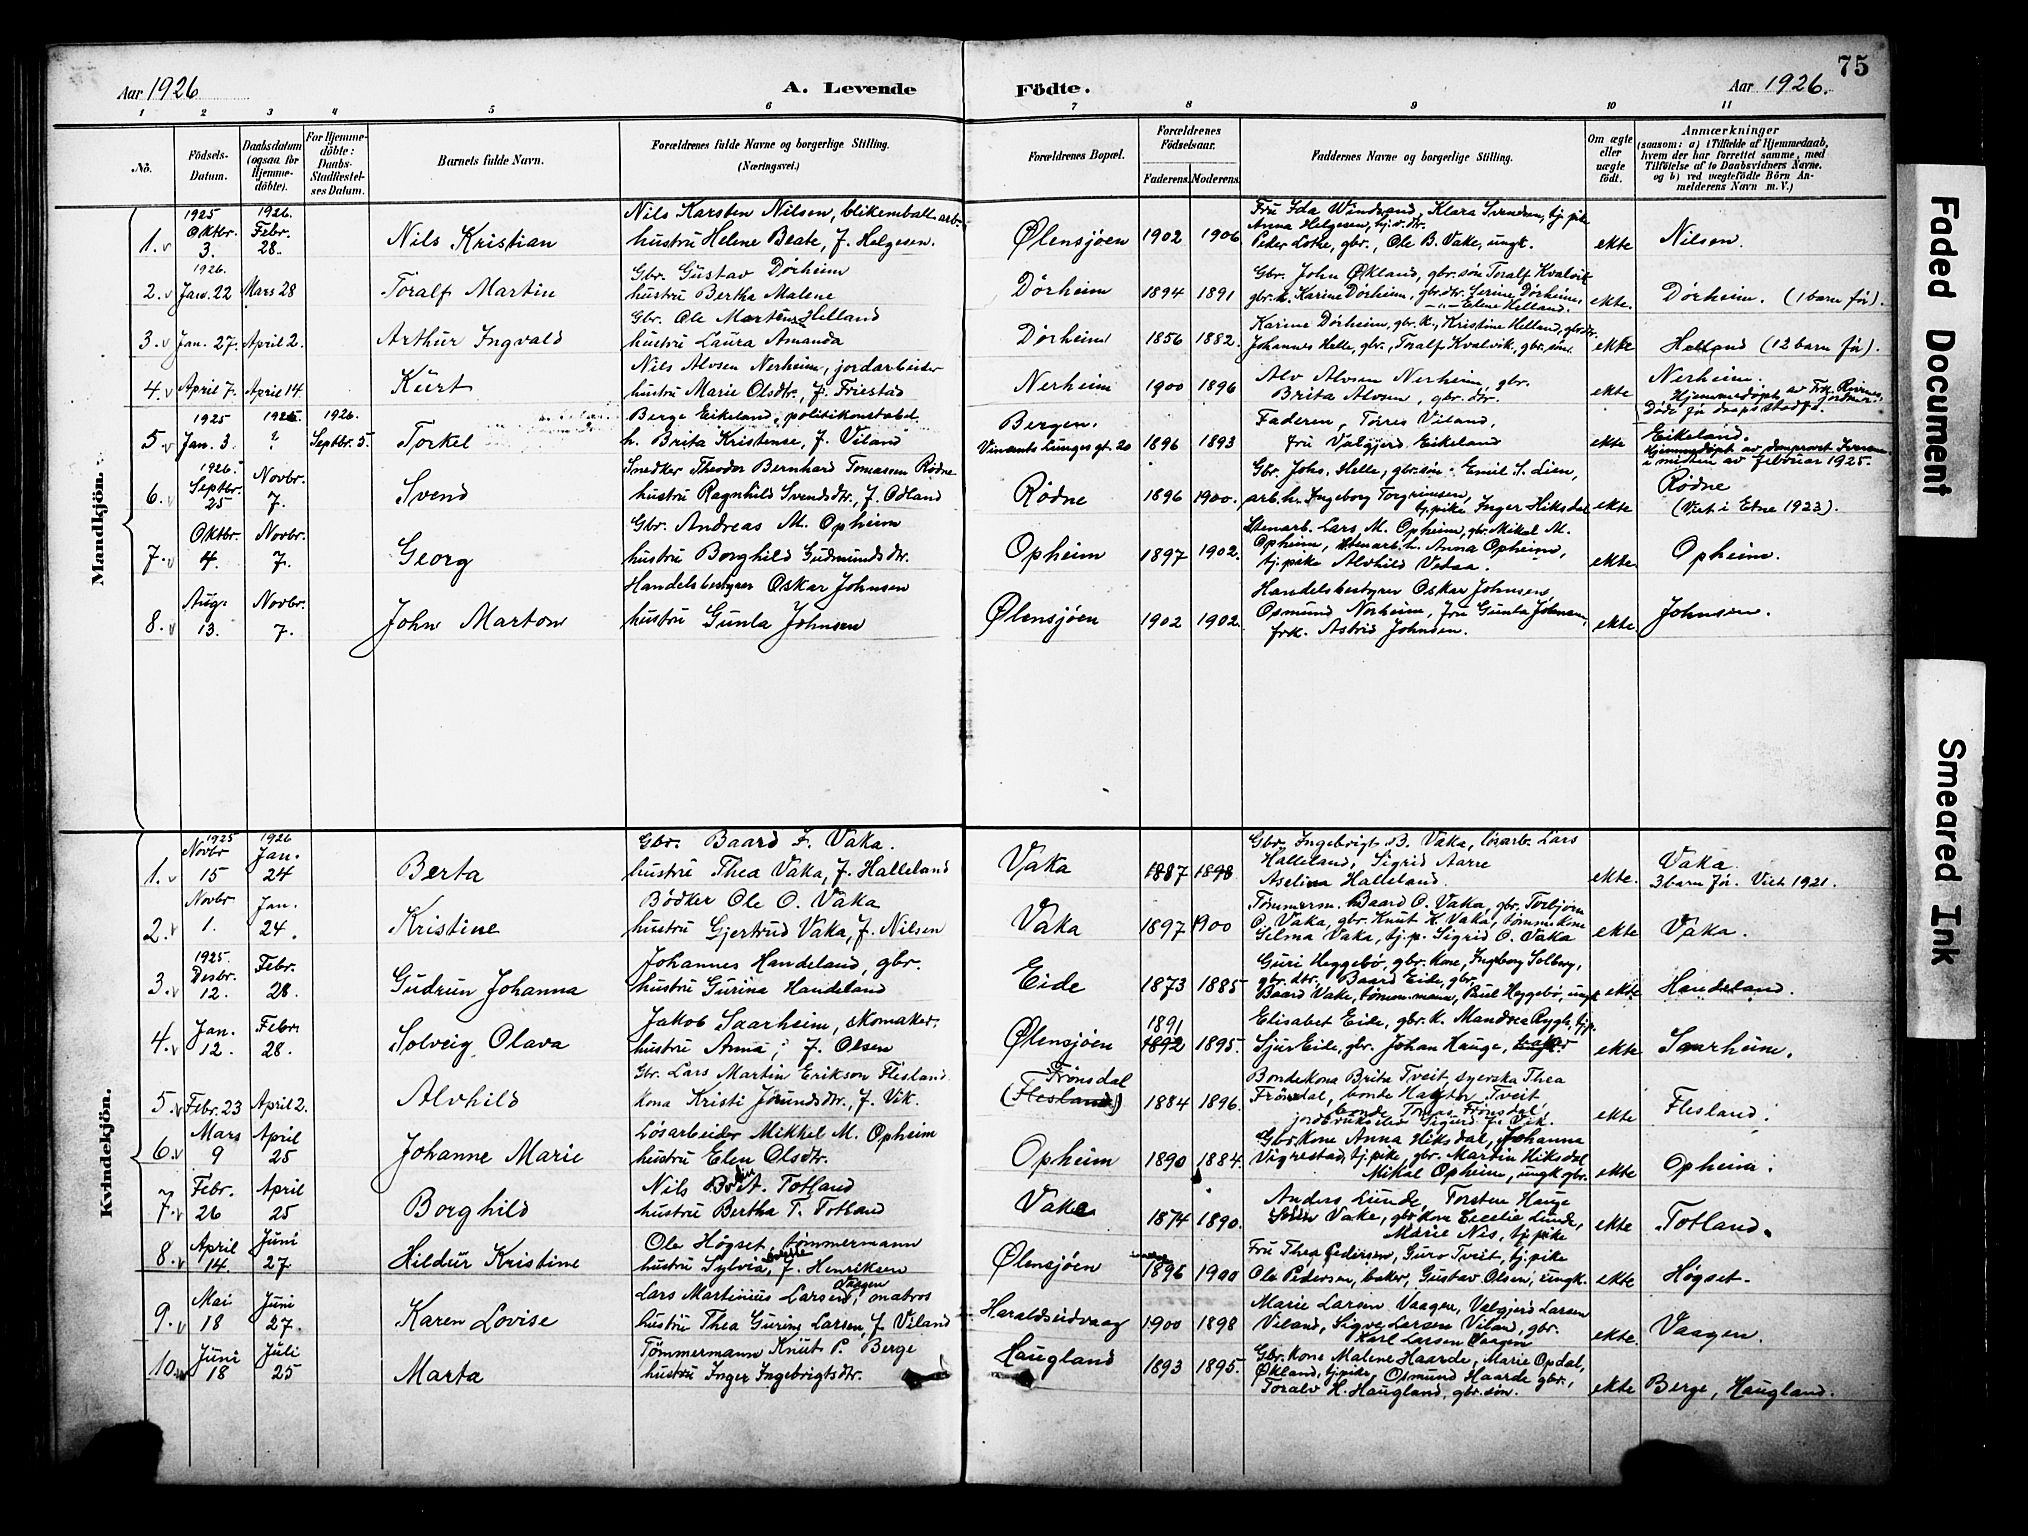 75
Aar 1926
A. Levende
Födte.
Aar 1926.
1 2 3 4 5 6 7 8 9 10 11
No.
Födsels-Datum.
Daabsdatum (ogsaa for Hjemme-döbte).
For Hjemme-döbte: Daabs-Stadfæstel-ses Datum.
Barnets fulde Navn.
Forældrenes fulde Navne og borgerlige Stilling.
(Næringsvei.)
Forældrenes Bopæl.
Forældrenes Födselsaar.
Faderens. Moderens.
Faddernes Navne og borgerlige Stilling.
Om ægte eller uægte födt.
Anmærkninger
(saasom: a) i Tilfælde af Hjemmedaab, hvem der har forrettet samme, med Tilföielse af to Daabsvidners Navne, og b) ved uægtefödte Börn An-melderens Navn m. V.)
Mandkjön.
1925 1926.
Oktbr. Febr.
1. 3. 28.
Nils Kristian
Nils Karsten Nilsen, blikemball.arb.
hustru Helene Beate, f. Helgesen.
Ølensjøen 1902 1906
Fru Ida Windrand, Klara Svendsen, tj.pike
Anna Helgesen, tj. o. dtr.
Peder Lothe, gbr., Ole B. Vake, ungk.
ekte
Nilsen.
1926.
2. Jan. 22 Mars 28
Toralf Martin
Gbr. Gustav Dörheim
hustru Bertha Malene
Dörheim 1894 1891
Gbr. John Økland, gbr. sön Toralf Kvalvik
gbr.k. Karine Dörheim, gbr.dtr. Serine Dörheim,
Eline Helland.
ekte.
Dörheim. (1 barn för).
3. Jan. 27. April 2.
Arthur Ingvald
Gbr. Ole Martinus Helland
hustru Laura Amanda
Dörheim 1856 1882.
Karine Dörheim, gbr. k., Kristine Helland, gbr.dtr.
Johannes Helle, gbr., Toralf Kvalvik, gbr. sön.
ekte
Helland (12 barn för).
4. April 7. April 14
Kurt
Nils Alvsen Nerheim, jordarbeider
hustru Marie Olsdtr., f. Friestad
Nerheim 1900 1896
Alv Alvsen Nerheim, gbr.
Brita Alvsen, gbr. dtr.
ekte
Nerheim.
Hjemmedöpt av Frk. Risnes, jordmor.
Döde för daapsstadf.
1925 1925. 1926.
5 Jan. 3 ? Septbr. 5.
Torkel
Berge Eikeland, politikonstabel
h. Brita Kristense, f. Viland
Bergen.
Vincents Lunges gt. 20 1896 1893
Faderen, Torres Viland,
fru Valgjerd Eikeland
ekte
Eikeland.
Hjemmedöpt av domprovst Iversen
i midten av februar 1925.
1926.
Septbr. Novbr.
6. 25 7.
Svend
Snedker Theodor Bernhard Tomassen Rödne
hustru Ragnhild Svendsdtr., f. Odland
Rödne 1896 1900.
Gbr. Johs. Helle, gbr. sön Emil S. Lien,
arb. h. Ingeborg Torgrimsen,
tj. pike Inger Hiksdal
ekte
Rödne
(Viet i Etne 1923).
Oktbr. Novbr.
7. 4. 7.
Georg
Gbr. Andreas M. Opheim
hustru Borghild Gudmundsdtr.
Opheim 1897 1902.
Stenarb. Lars M. Opheim, gbr. Mikal M.
Opheim, stenarb. h. Anna Opheim,
tj. pike Alvhild
ekte
Opheim.
Aug. Novbr.
8. 13. 7.
John Marton
Handelsbestyrer Oskar Johnsen
hustru Gunla Johnsen
Ølensjøen 1902 1902.
Handelsbestyrer Oskar Johnsen,
Osmund Norheim, fru Gunla Johnsen,
frk. Astrid Johnsen.
ekte
Johnsen.
Kvindekjön.
1925 1926
Novbr Jan.
1. 15 24
Berta
Gbr. Baard F. Vaka.
hustru Thea Vaka, f. Halleland
Vaka 1887 1898
Gbr. Ingebrigt B. Vaka, lösarb. Lars
Halleland, Sigrid Aarre
Aselina Halleland.
ekte.
Vaka
3 barn för. Viet 1921.
Novbr. Jan.
2. 1. 24.
Kristine
Bödker Ole O. Vaka
hustru Gjertrud Vaka, f. Nilsen
Vaka 1897 1900
Tømmerm. Baard O. Vaka, gbr. Torbjörn
O. Vaka, gbr. Knut H. Vaka, tömm. kone
Gilma Vaka, tj. p. Sigrid O. Vaka
ekte
Vaka.
1925.
Desbr. Febr.
3. 12. 28.
Gudrun Johanna
Johannes Handeland, gbr.
hustru Gurina Handeland
Eide 1873 1885
Guri Heggebö, gbr. kone, Ingeborg Solberg,
gbr. dtr. Baard Eide, gbr.
Baard Vake, tömm. mann, Paul Heggebö, ungk.
ekte
Handeland.
Jan. Febr.
4. 12. 28.
Solveig Olava
Jakob Saarheim, skomaker.
hustru Anna, f. Olsen
Ølensjøen
1891
1892 1895.
Elisabet Eide, gbr. k. Mandrea Rygh, tj.p.
Sjur Eide, gbr. Johan Hauge,
ekte
Saarheim.
5. Febr. 23 April 2.
Alvhild
Gbr. Lars Martin Erikson Flesland
kona Kristi Jörundsdtr., f. Vik.
Frönsdal
(Flesland) 1884 1896.
Bondekona Brita Tveit, syerska Thea
Frönsdal, bonde Haktor Tveit,
bonde Tomas Frönsdal,
jordbrukselev Sigurd J. Vik.
ekte
Flesland.
Mars April
6. 9 25
Johanne Marie
Lösarbeider Mikkel M. Opheim
hustru Elen Olsdtr.
Opheim 1890 1884.
Gbr. kone Anna Hiksdal, Johanna
Vigrestad, tj. pike, gbr. Martin Hiksdal
Mikal Opheim, ungk. gbr.
ekte
Opheim.
Febr. April
7. 26 25
Borghild
Nils Totland
hustru Bertha T. Totland
Vake 1874 1890.
Anders Lunde, Torsten Hauge
Vake, gbr. kone Cecelie Lunde,
Marie Nes, tj. pike
ekte
Totland.
April Juni
8. 14. 27.
Hildur Kristine
Ole Högset, tömmermann
hustru Sylvia, f. Henriksen
Ølensjøen 1896 1900
Fru Thea Pedersen, Guro Tveit, tj. pike
Ole Pedersen, baker, Gustav Olsen, ungk.
ekte
Högset.
Mai Juni
9. 18 27.
Karen Lovise
Lars Martinius Larsen Vaagen, matros
hustru Thea Gurine Larsen, f. Viland
Haraldseidvaag 1900 1898
Marie Larsen Vaagen, Valgjerd Larsen
Viland, Sigve Larsen Viland, gbr.
Karl Larsen Vaagen
ekte.
Vaagen.
Juni Juli
10. 18 25
Marta
Tömmermann Knut P. Berge
hustru Inger Ingebrigtsdtr.
Haugland 1893 1895.
Gbr. kone Malene Haarde, Marie Opdal,
Økland, tj. pike, Osmund Haarde gbr.,
Toralv H. Haugland, gbr. sön.
ekte
Berge, Haugland.
Faded Document
Smeared Ink